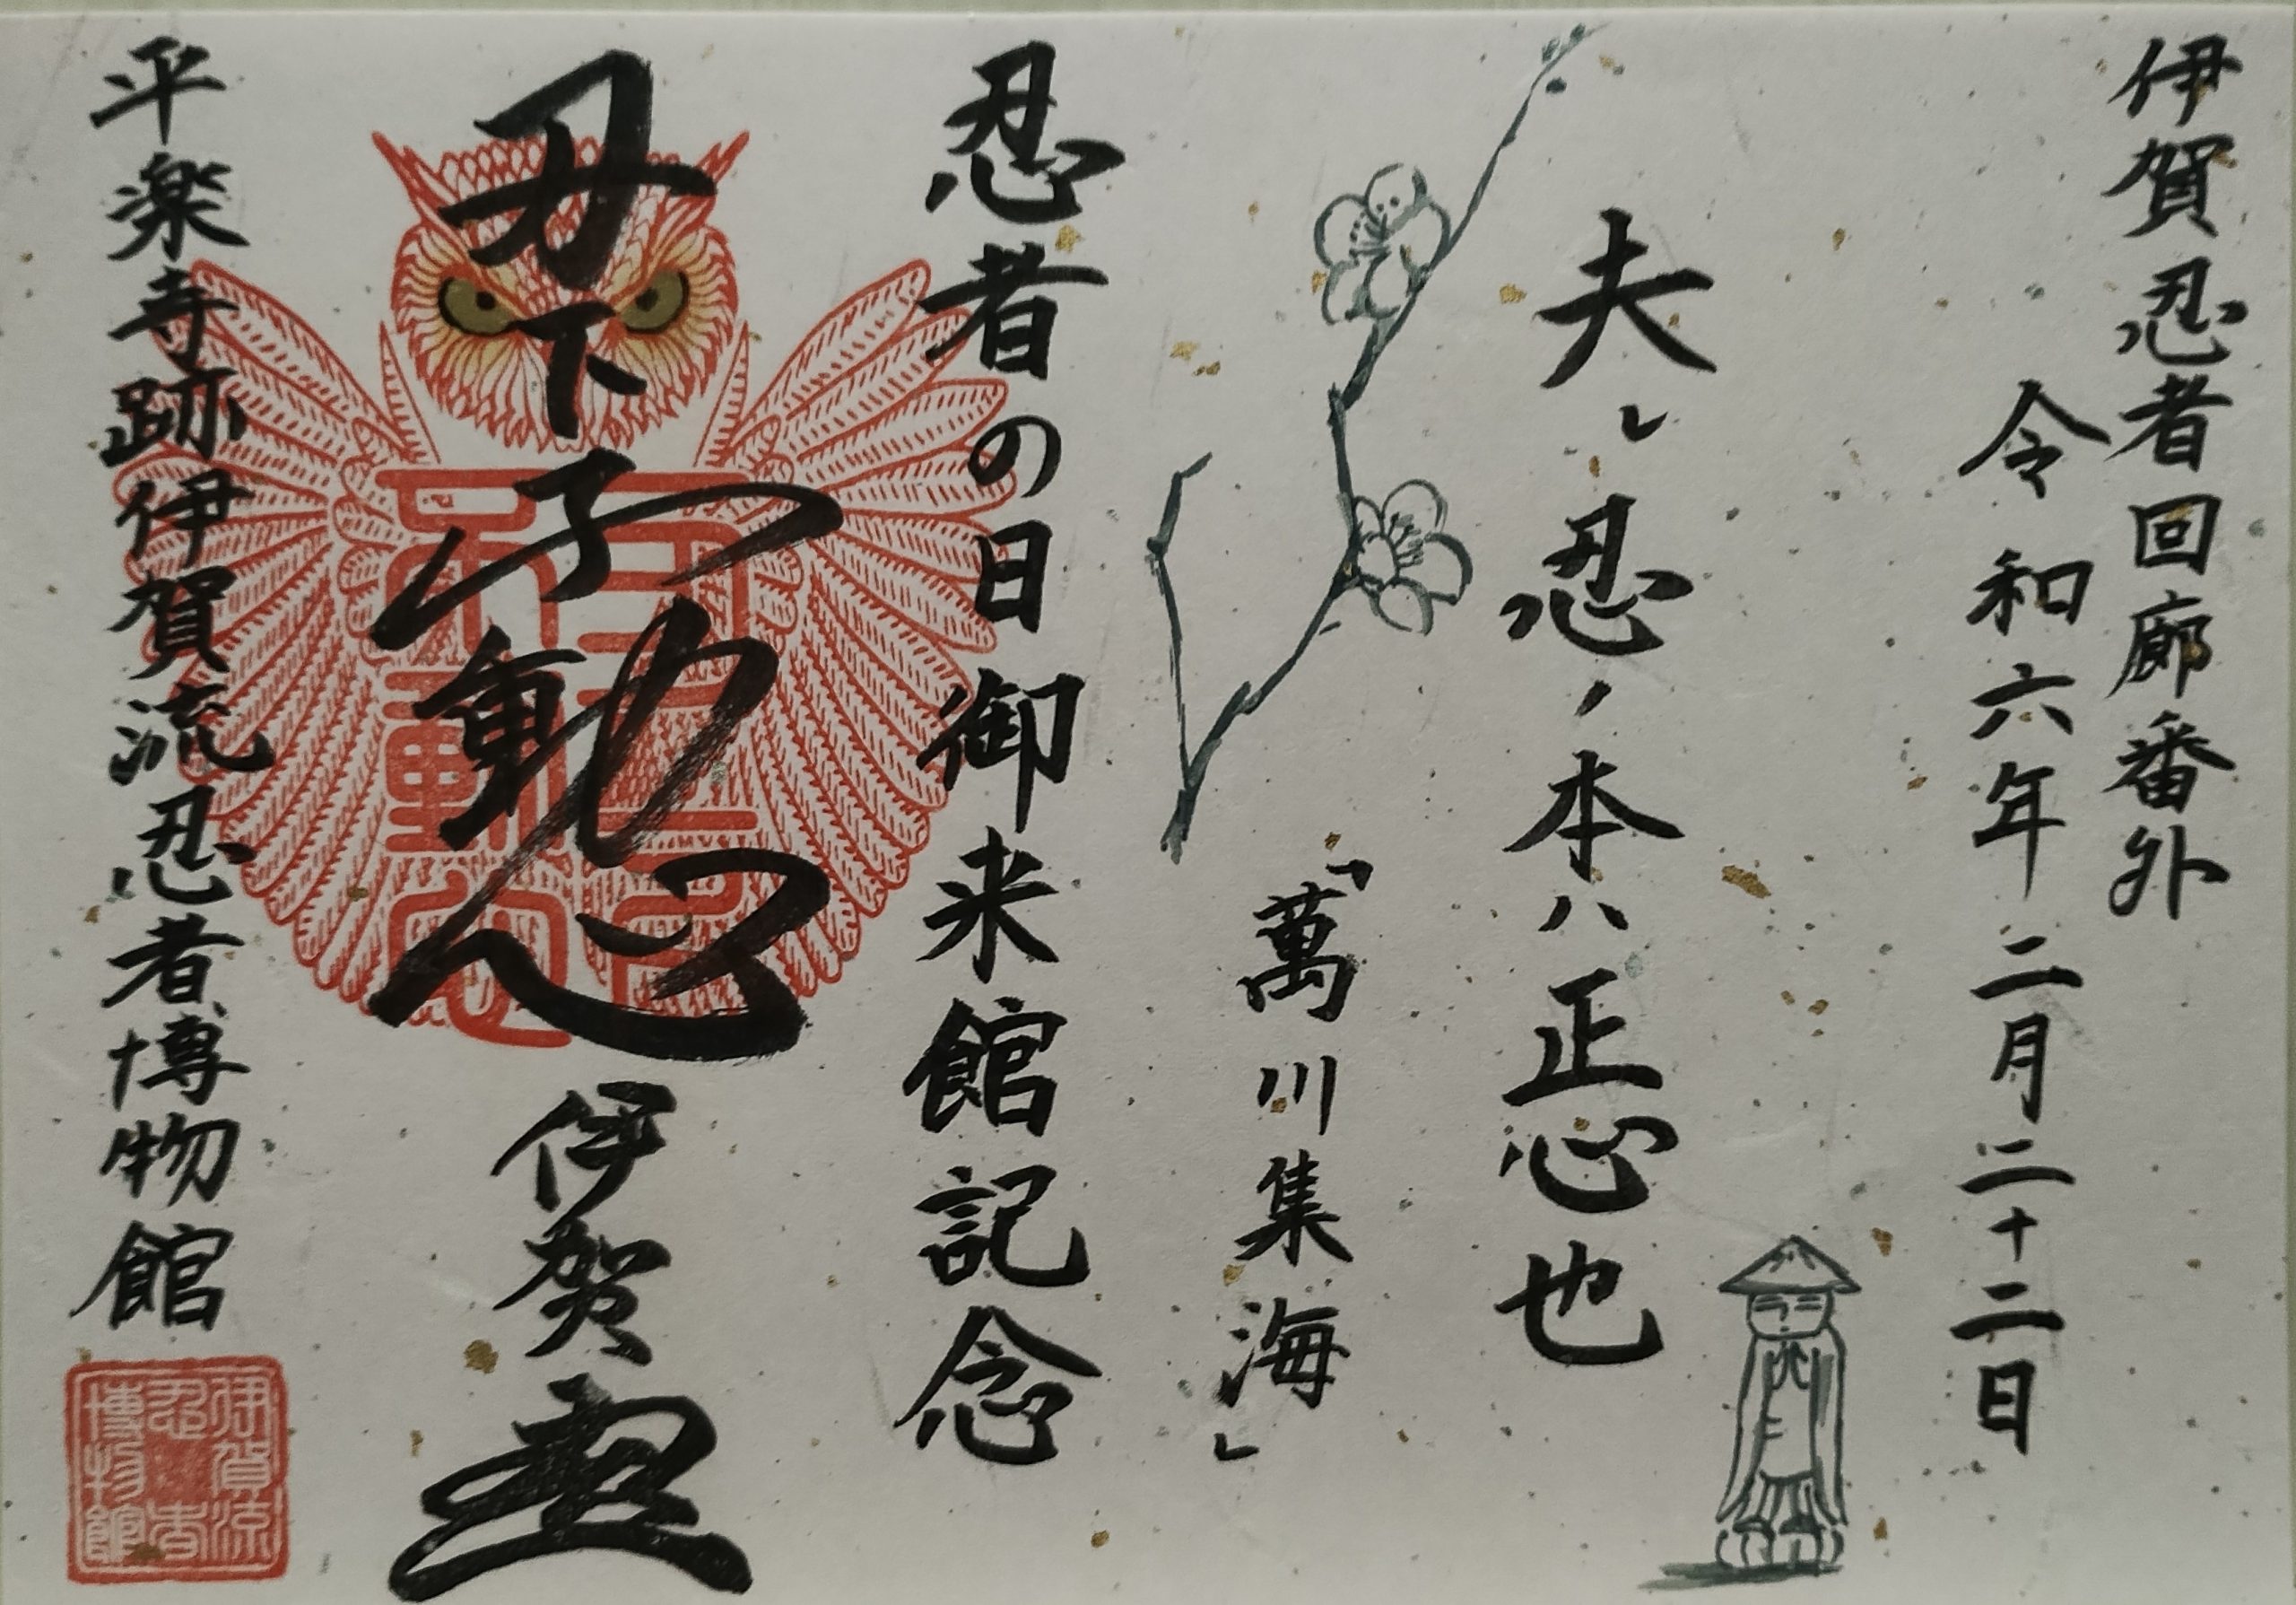 伊賀忍者回廊番外
令和六年二月二十二日
夫レ忍ノ本ハ正心也
「萬川集海」
忍者の日御来館記念
刃下不動心
伊賀
平楽寺跡伊賀流忍者博物館
不動心
伊賀流
忍者
博物館